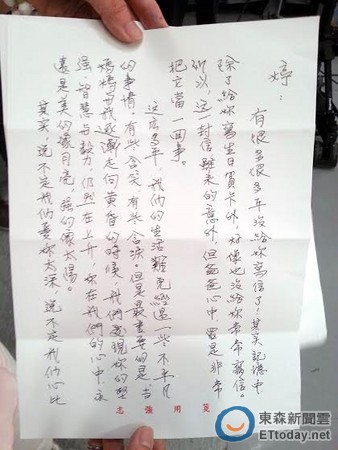 婷:
有很多很多年沒給妳寫信了!其實記憶中
除了給妳寫生日賀卡外,好像也沒給妳常常寫信。
所以,這一封信雖來的意外,但爸爸心中還是非常
把它當一回事。
這么多年,我們的生活難免經過一些不平凡
的事情,有些含笑,有些含淚,但是最重要的是,當
媽媽與我逐漸走向黃昏的時候,我們發現妳的堅
強、智慧與毅力,仍然在上升,妳在我們的心中,永
遠是美的像月亮,強的像太陽。
其實,說不定我們愛妳太深,說不定我們心比
志強用箋
東森新聞雲
ETtoday.net